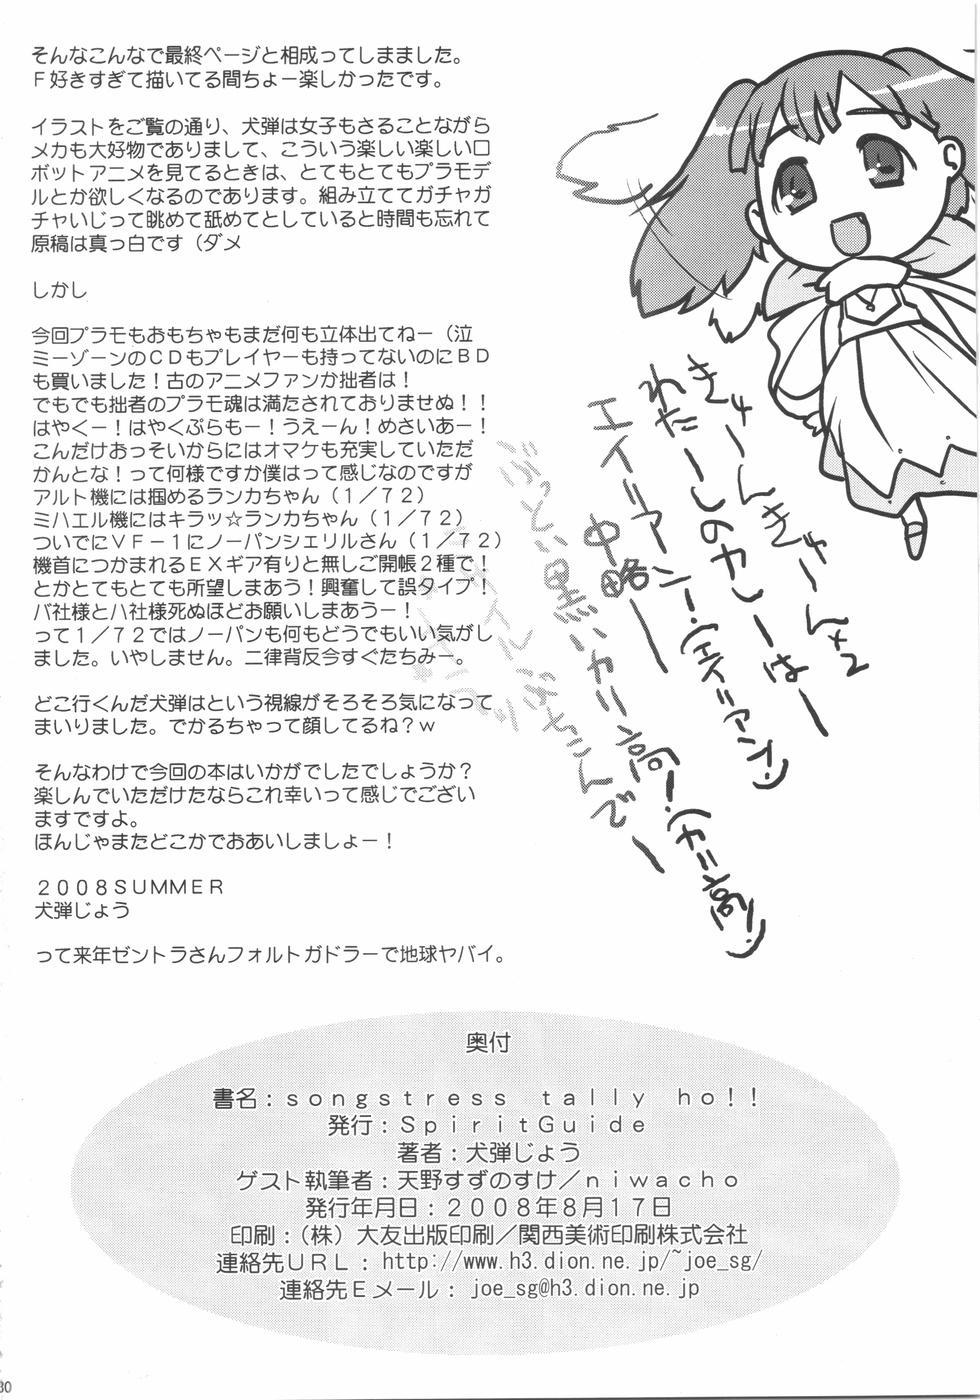 そんなこんなで最終ページと相成ってしまました。
Ｆ好きすぎて描いてる間ちょー楽しかったです。
イラストをご覧の通り、犬弾は女子もさることながら
メカも大好物でありまして、こういう楽しい楽しいロ
ボットアニメを見てるときは、とてもとてもプラモデ
ルとか欲しくなるのであります。組み立ててガチャガ
チャいじって眺めて舐めてとしていると時間も忘れて
原稿は真っ白です（ダメ
しかし
今回プラモもおもちゃもまだ何も立体出てねー（泣
ミーゾーンのＣＤもプレイヤーも持ってないのにＢＤ
も買いました！古のアニメファンか拙者は！
でもでも拙者のプラモ魂は満たされておりませぬ！！
はやくー！はやくぷらもー！うえーん！めさいあー！
こんだけおっそいからにはオマケも充実していただ
かんとな！って何様ですか僕はって感じなのですが
アルト機には掴めるランカちゃん（１／７２）
ミハエル機にはキラッ☆ランカちゃん（１／７２）
ついでにＶＦ－１にノーパンシェリルさん（１／７２）
機首につかまれるＥＸギア有りと無しご開帳２種で！
とかとてもとても所望しまあう！興奮して誤タイプ！
バ社様とハ社様死ぬほどお願いしまあうー！
って１／７２ではノーパンも何もどうでもいい気がし
ました。いやしません。二律背反今すぐたちみー。
どこ行くんだ犬弾はという視線がそろそろ気になって
まいりました。でかるちゃって顔してるね？ｗ
そんなわけで今回の本はいかがでしたでしょうか？
楽しんでいただけたならこれ幸いって感じでござい
ますですよ。
ほんじゃまたどこかでおあいしましょー！
２００８ＳＵＭＭＥＲ
犬弾じょう
って来年ゼントラさんフォルトガドラーで地球ヤバイ。
きゅーんきゅーん×2
わたーしのカレーはー
エイリアン！（エイリアン♪）
中略ー
ぶっとい黒いカリ高！（カリ高♪）
奥付
書名：ｓｏｎｇｓｔｒｅｓｓ　ｔａｌｌｙ　ｈｏ！！
発行：ＳｐｉｒｉｔＧｕｉｄｅ
著者：犬弾じょう
ゲスト執筆者：天野すずのすけ／ｎｉｗａｃｈｏ
発行年月日：２００８年８月１７日
印刷：（株）大友出版印刷／関西美術印刷株式会社
連絡先ＵＲＬ：http://www.h3.dion.ne.jp/~joe_sg/
連絡先Ｅメール：joe_sg@h3.dion.ne.jp
30